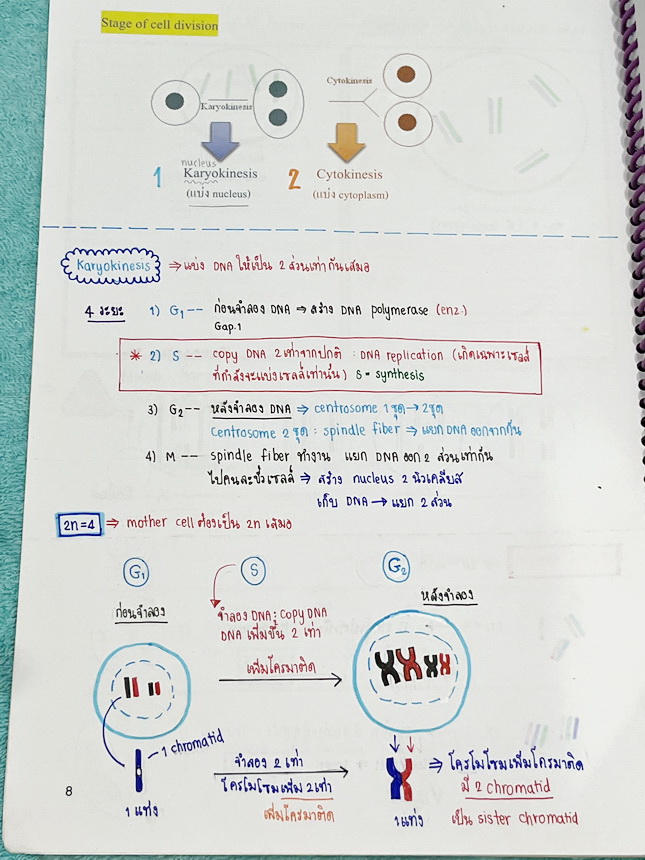 Stage of cell division
Karyokinesis
Cytokinesis
nucleus
1 Karyokinesis
(แบ่ง nucleus)
2 Cytokinesis
(แบ่ง cytoplasm)
Karyokinesis ⇒ แบ่ง DNA ให้เป็น 2 ส่วนเท่ากันเสมอ
4 ระยะ 1) G1 -- ก่อนจำลอง DNA ⇒ สร้าง DNA polymerase (enz.)
Gap.1
* 2) S -- copy DNA 2 เท่าจากปกติ : DNA replication (เกิดเฉพาะเซลล์
ที่กำลังจะแบ่งเซลล์เท่านั้น) S = synthesis
3) G2 -- หลังจำลอง DNA ⇒ centrosome 1 ชุด → 2 ชุด
Centrosome 2 ชุด : spindle fiber ⇒ แยก DNA ออกจากกัน
4) M -- spindle fiber ทำงาน แยก DNA ออก 2 ส่วนเท่ากัน
ไปคนละขั้วเซลล์ ⇒ สร้าง nucleus 2 นิวเคลียส
เก็บ DNA → แยก 2 ส่วน
2n=4 ⇒ mother cell ต้องเป็น 2n เสมอ
G1 S G2
ก่อนจำลอง
จำลอง DNA : copy DNA
DNA เพิ่มขึ้น 2 เท่า
หลังจำลอง
เพิ่มโครมาติด
1 chromatid
1 แท่ง
จำลอง 2 เท่า
โครโมโซมเพิ่ม 2 เท่า
เพิ่มโครมาติด
1 แท่ง
⇒ โครโมโซมเพิ่มโครมาติด
มี 2 chromatid
เป็น sister chromatid
8